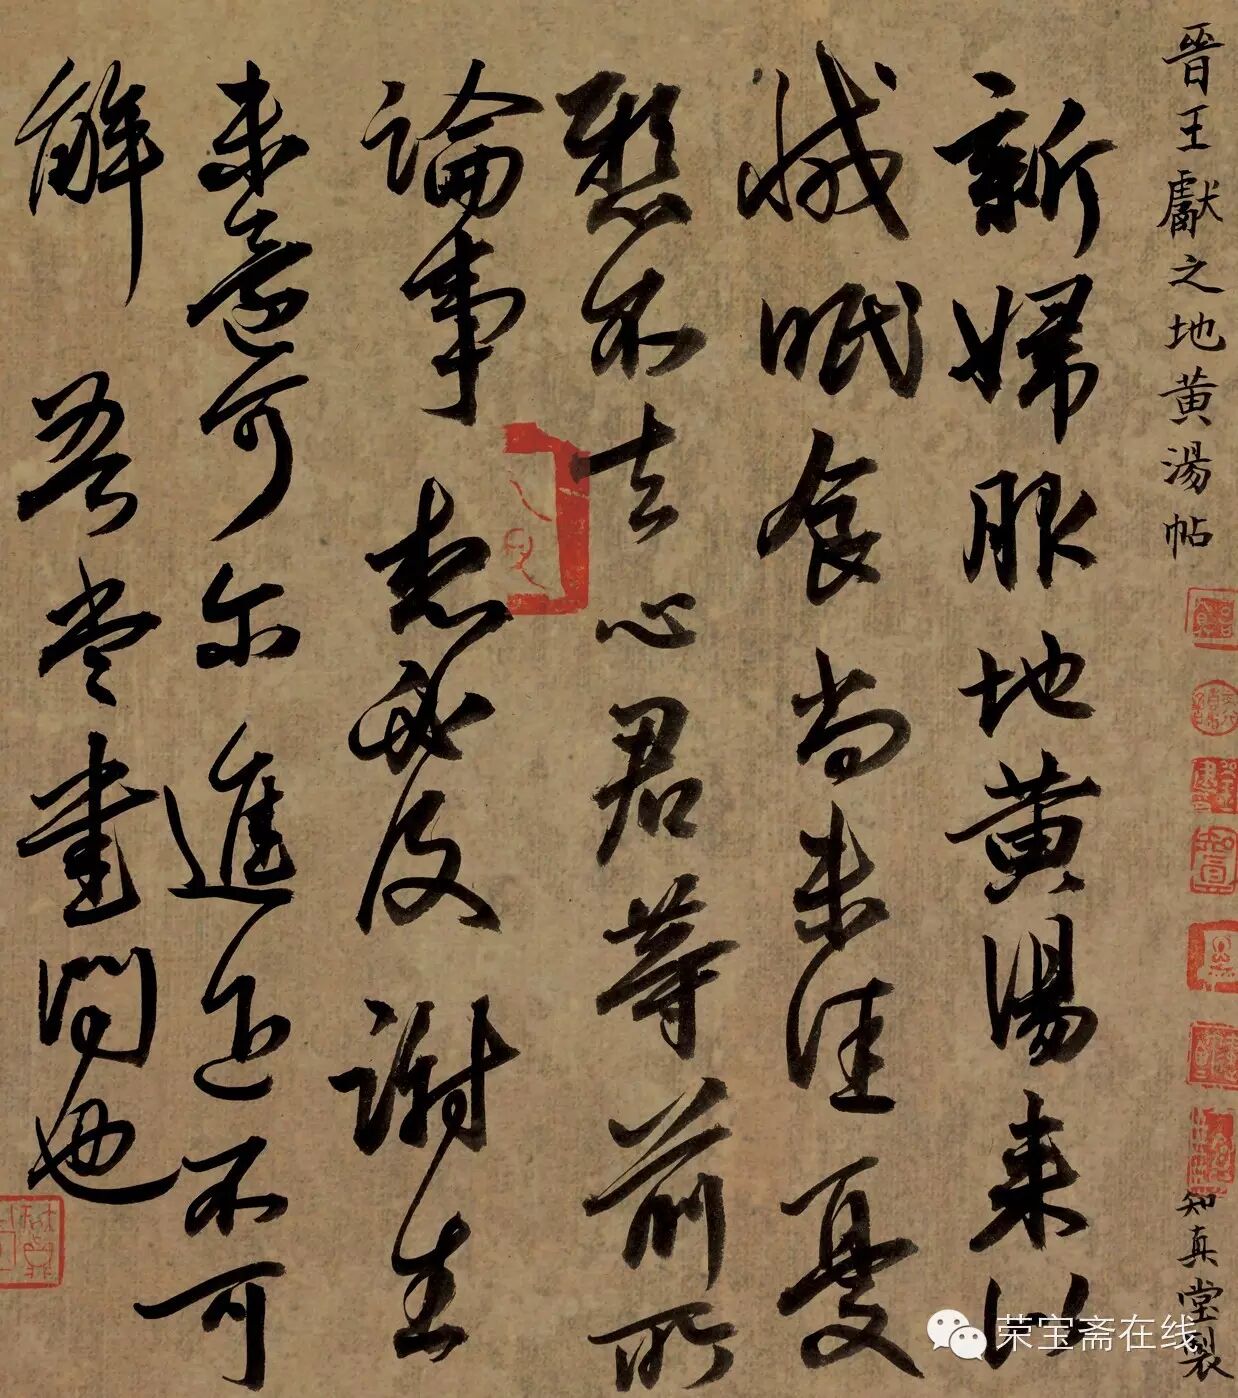 晋王獻之地黃湯帖
知真堂製
新婦服地黃湯来似
减眠食尚未佳憂
懸不去心君等前所
論事想必及謝生
未還可尔進退不可
解吾當書問也
荣宝斋在线